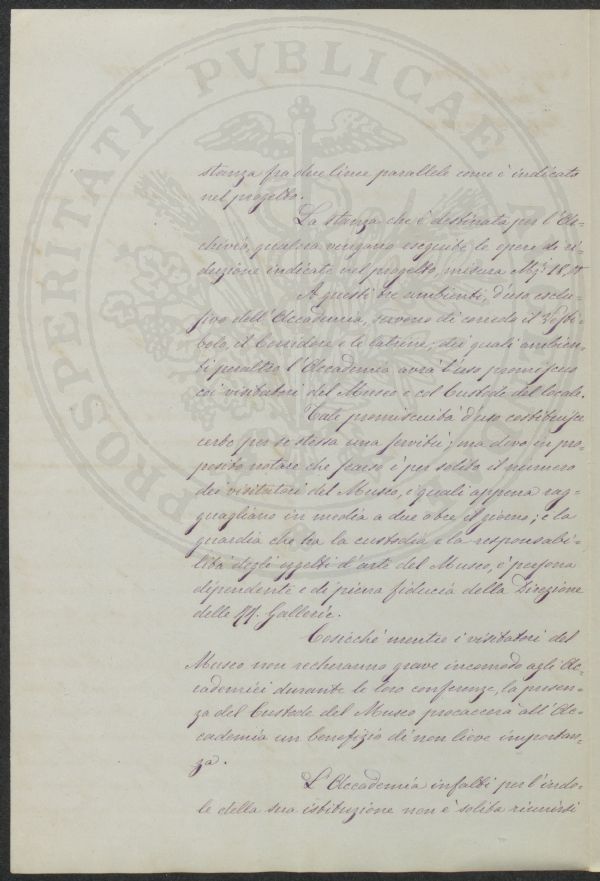 PROSPERITATI PVBLICAE
stanza fra due linee parallele come è indicato
nel progetto.
La stanza che è destinata per l'Ar=
chivio, qualora vengano eseguite le opere di ri=
duzione indicate nel progetto, misura Mq.
A questi tre ambienti, d'uso esclu=
sivo dell'Accademia, servono di corredo il Vesti=
bolo, il Corridore e le latrine; dei quali ambien=
ti peraltro l'Accademia avrà l'uso promiscuo
coi visitatori del Museo e col Custode del locale.
Tale promiscuità d'uso costituisce
certo per se stessa una servitù; ma devo in pro=
posito notare che scarso è per solito il numero
dei visitatori del Museo, i quali appena rag=
guagliano in media a due o tre il giorno; e la
guardia che ha la custodia e la responsabi=
lità degli oggetti d'arte del Museo, è persona
dipendente e di piena fiducia della Direzione
delle RR. Gallerie.
Cosicché mentre i visitatori del
Museo non recheranno grave incomodo agli Ac=
cademici durante le loro conferenze, la presen=
za del Custode del Museo procaccerà all'Ac=
cademia un benefizio di non lieve importan=
za.
L'Accademia infatti per l'indo=
le della sua istituzione non è solita riunirsi